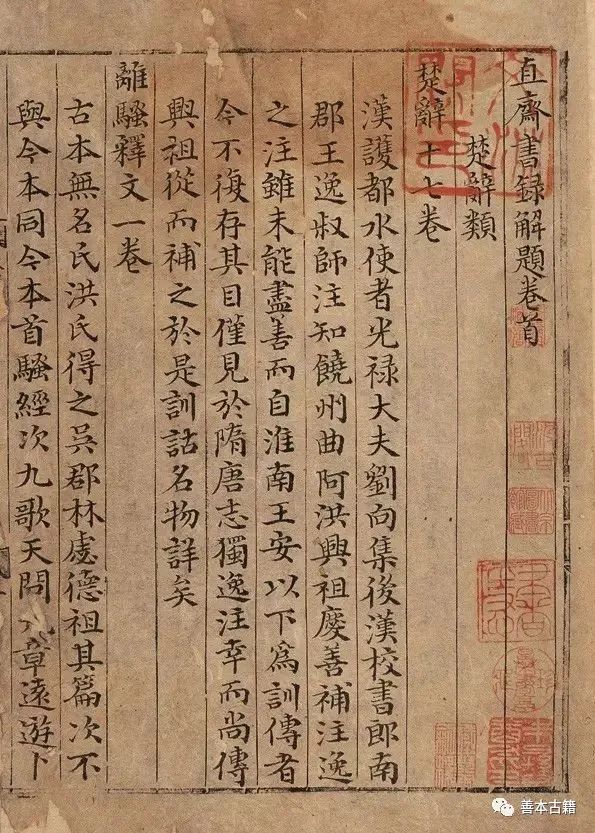 直齋書録解題卷首
楚辭類
楚辭十七卷
漢護都水使者光禄大夫劉向集後漢校書郎南
郡王逸叔師注知饒州曲阿洪興祖慶善補注逸
之注雖未能盡善而自淮南王安以下爲訓傳者
今不復存其目僅見於隋唐志獨逸注幸而尚傳
興祖從而補之於是訓詁名物詳矣
離騷釋文一卷
古本無名氏洪氏得之吳郡林虙德祖其篇次不
與今本同今本首騷經次九歌天問九章遠遊卜
善本古籍